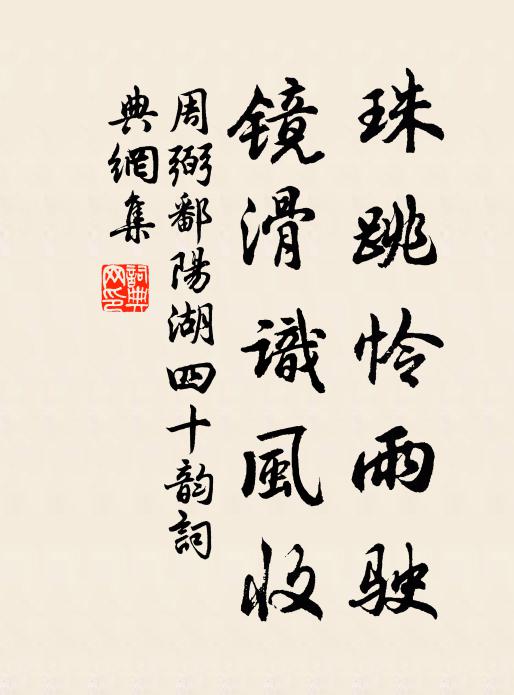 珠跳怜雨駛
镜滑識風收
周弼鄱陽湖四十韵詞
典網集
詞典網印